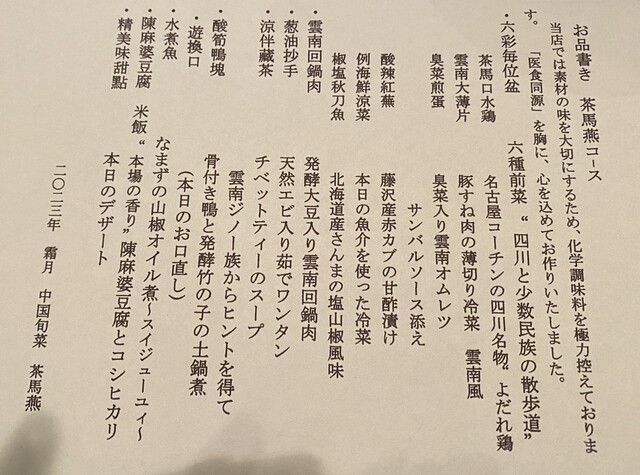 お品書き　茶馬燕コース
当店では素材の味を大切にするため、化学調味料を極力控えております。
「医食同源」を胸に、心を込めてお作りいたしました。
・六彩毎位盆　六種前菜　“四川と少数民族の散歩道”
茶馬口水鶏　名古屋コーチンの四川名物“よだれ鶏
雲南大薄片　豚すね肉の薄切り冷菜　雲南風
臭菜煎蛋　臭菜入り雲南オムレツ
サンバルソース添え
酸辣紅蕪　藤沢産赤カブの甘酢漬け
例海鮮涼菜　本日の魚介を使った冷菜
椒塩秋刀魚　北海道産さんまの塩山椒風味
・雲南回鍋肉　発酵大豆入り雲南回鍋肉
・葱油抄手　天然エビ入り茹でワンタン
・涼伴蔵茶　チベットティーのスープ
雲南ジノー族からヒントを得て
・酸筍鴨塊　骨付き鴨と発酵竹の子の土鍋煮
・遊換口　（本日のお口直し）
・水煮魚　なまずの山椒オイル煮～スイジューユィ～
・陳麻婆豆腐　米飯　“本場の香り”陳麻婆豆腐とコシヒカリ
・精美味甜點　本日のデザート
二〇二三年　霜月　中国旬菜　茶馬燕